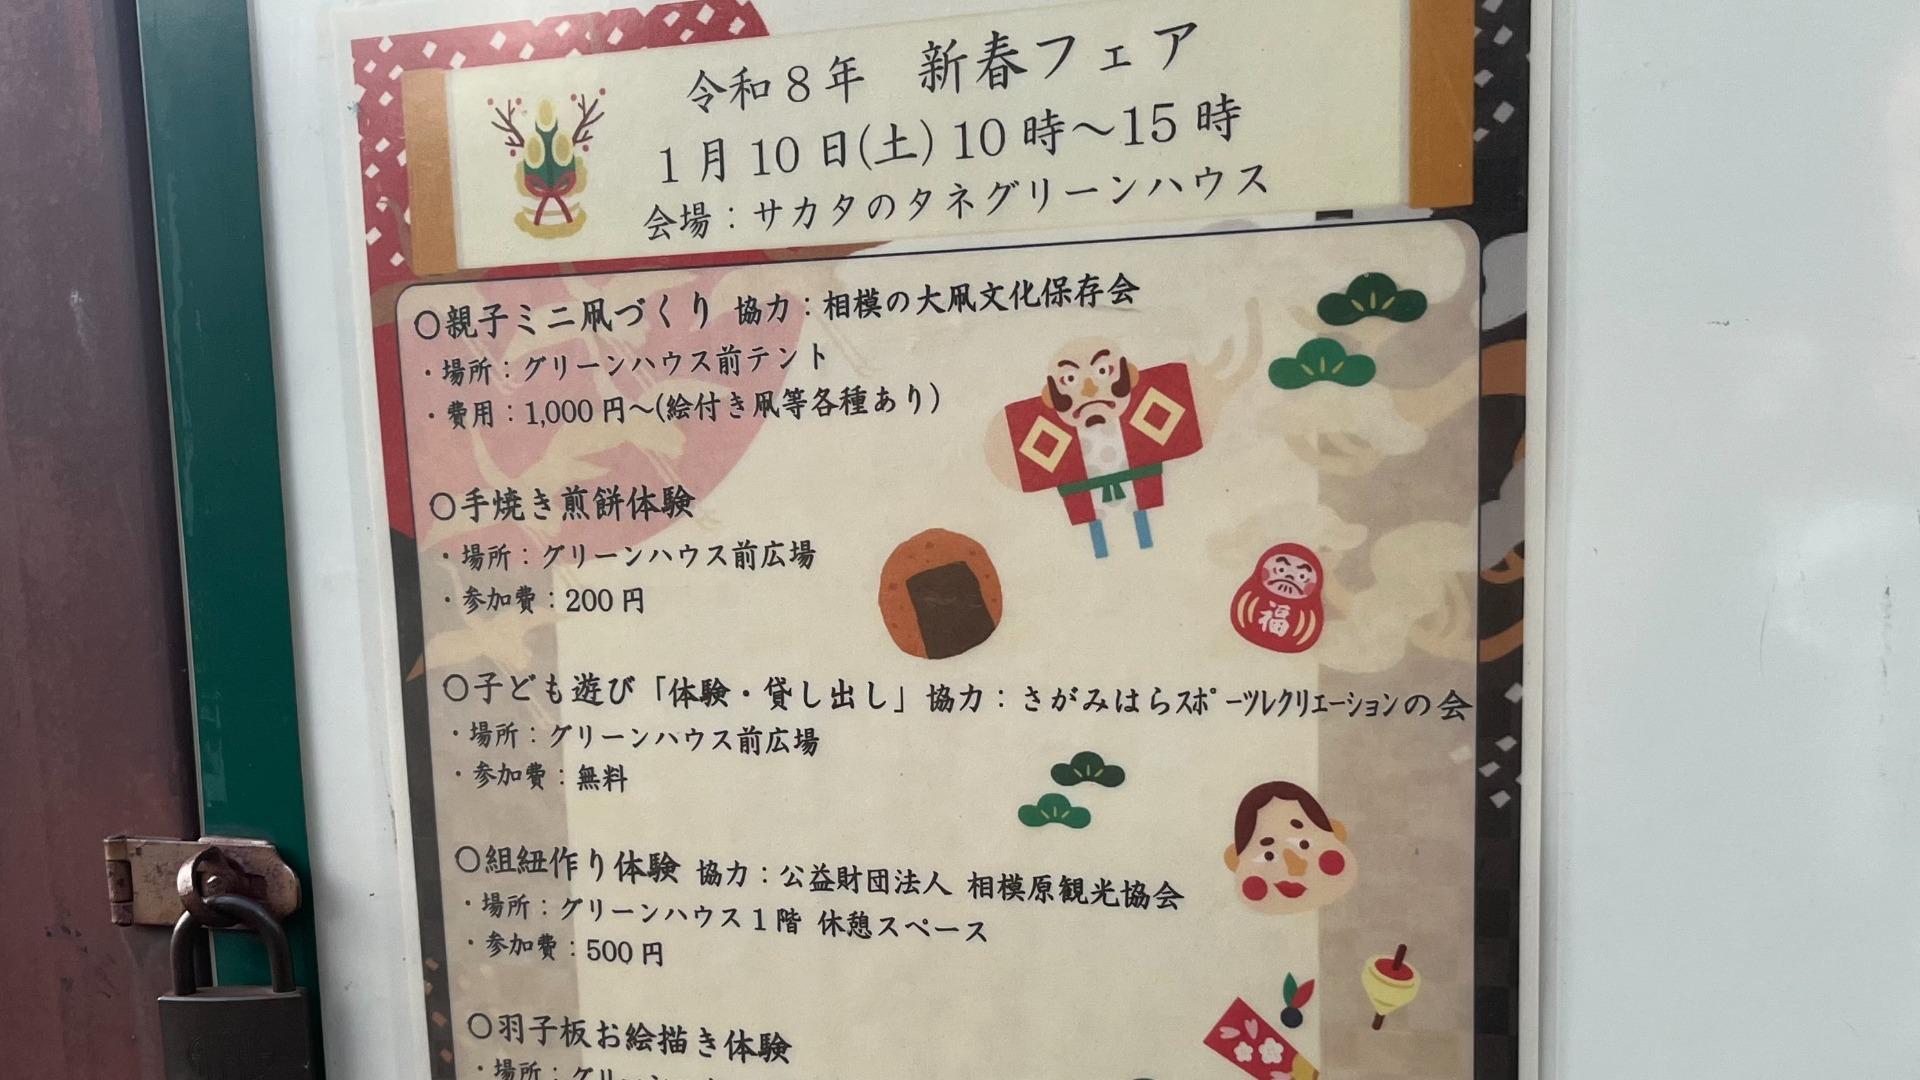 令和8年　新春フェア
1月10日(土) 10時～15時
会場：サカタのタネグリーンハウス
〇親子ミニ凧づくり 協力：相模の大凧文化保存会
・場所：グリーンハウス前テント
・費用：1,000円～(絵付き凧等各種あり)
〇手焼き煎餅体験
・場所：グリーンハウス前広場
・参加費：200円
福
〇子ども遊び「体験・貸し出し」協力：さがみはらｽﾎﾟｰﾂﾚｸﾘｴｰｼｮﾝの会
・場所：グリーンハウス前広場
・参加費：無料
〇組紐作り体験 協力：公益財団法人 相模原観光協会
・場所：グリーンハウス1階 休憩スペース
・参加費：500円
〇羽子板お絵描き体験
・場所：グリーン